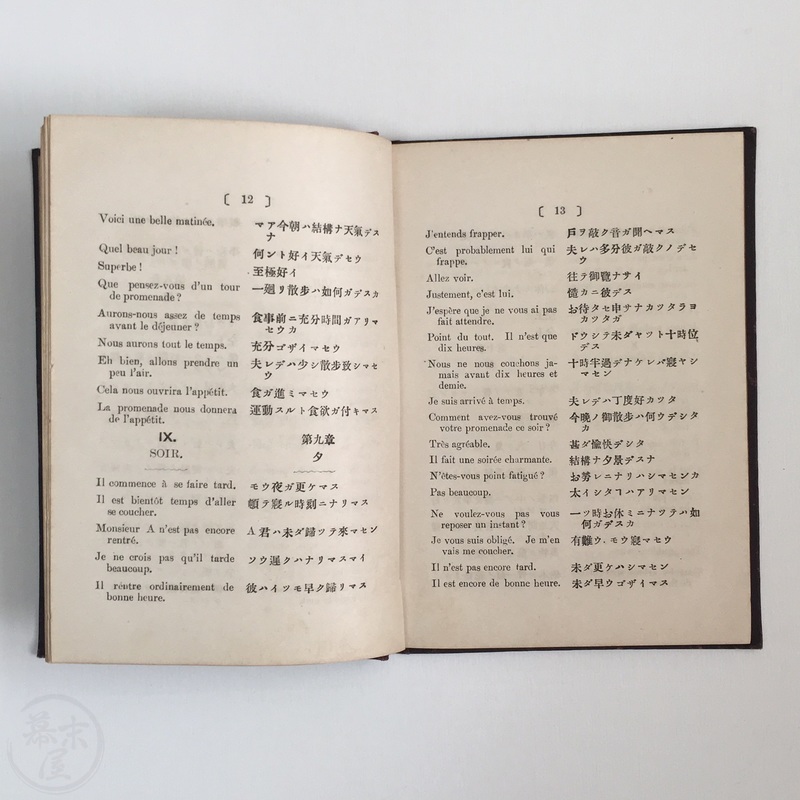 〔 12 〕
Voici une belle matinée. マア今朝ハ結構ナ天氣デス
ナ
Quel beau jour ! 何ント好イ天氣デセウ
Superbe ! 至極好イ
Que pensez-vous d'un tour 一廻リ散歩ハ如何ガデスカ
de promenade ?
Aurons-nous assez de temps 食事前ニ充分時間ガアリマ
avant le déjeuner ? セウカ
Nous aurons tout le temps. 充分ゴザイマセウ
Eh bien, allons prendre un 夫レデハ少シ散歩致シマセ
peu l'air. ウ
Cela nous ouvrira l'appétit. 食ガ進ミマセウ
La promenade nous donnera 運動スルト食欲ガ付キマス
de l'appétit.
IX. 第九章
SOIR. 夕
Il commence à se faire tard. モウ夜ガ更ケマス
Il est bientôt temps d'aller 頓テ寢ル時刻ニナリマス
se coucher.
Monsieur A n'est pas encore A君ハ未ダ歸ツテ來マセン
rentré.
Je ne crois pas qu'il tarde ソウ遲クハナリマスマイ
beaucoup.
Il rentre ordinairement de 彼ハイツモ早ク歸リマス
bonne heure.
〔 13 〕
J'entends frapper. 戸ヲ敲ク音ガ聞ヘマス
C'est probablement lui qui 夫レハ多分彼ガ敲クノデセ
frappe. ウ
Allez voir. 往テ御覽ナサイ
Justement, c'est lui. 慥カニ彼デス
J'espère que je ne vous ai pas お待タセ申サナカツタラヨ
fait attendre. カツタガ
Point du tout. Il n'est que ドウシテ未ダヤツト十時位
dix heures. デス
Nous ne nous couchons ja- 十時半過デナケレバ寢ヤシ
mais avant dix heures et マセン
demie.
Je suis arrivé à temps. 夫レデハ丁度好カツタ
Comment avez-vous trouvé 今晩ノ御散歩ハ何ウデシタ
votre promenade ce soir ? カ
Très agréable. 甚ダ愉快デシタ
Il fait une soirée charmante. 結構ナ夕景デスナ
N'êtes-vous point fatigué ? お勞レニナリハシマセンカ
Pas beaucoup. 太イシタヿハアリマセン
Ne voulez-vous pas vous 一ツ時お休ミニナツテハ如
reposer un instant ? 何ガデスカ
Je vous suis obligé. Je m'en 有難ウ、モウ寢マセウ
vais me coucher.
Il n'est pas encore tard. 未ダ更ケハシマセン
Il est encore de bonne heure. 未ダ早ウゴザイマス
幕末屋